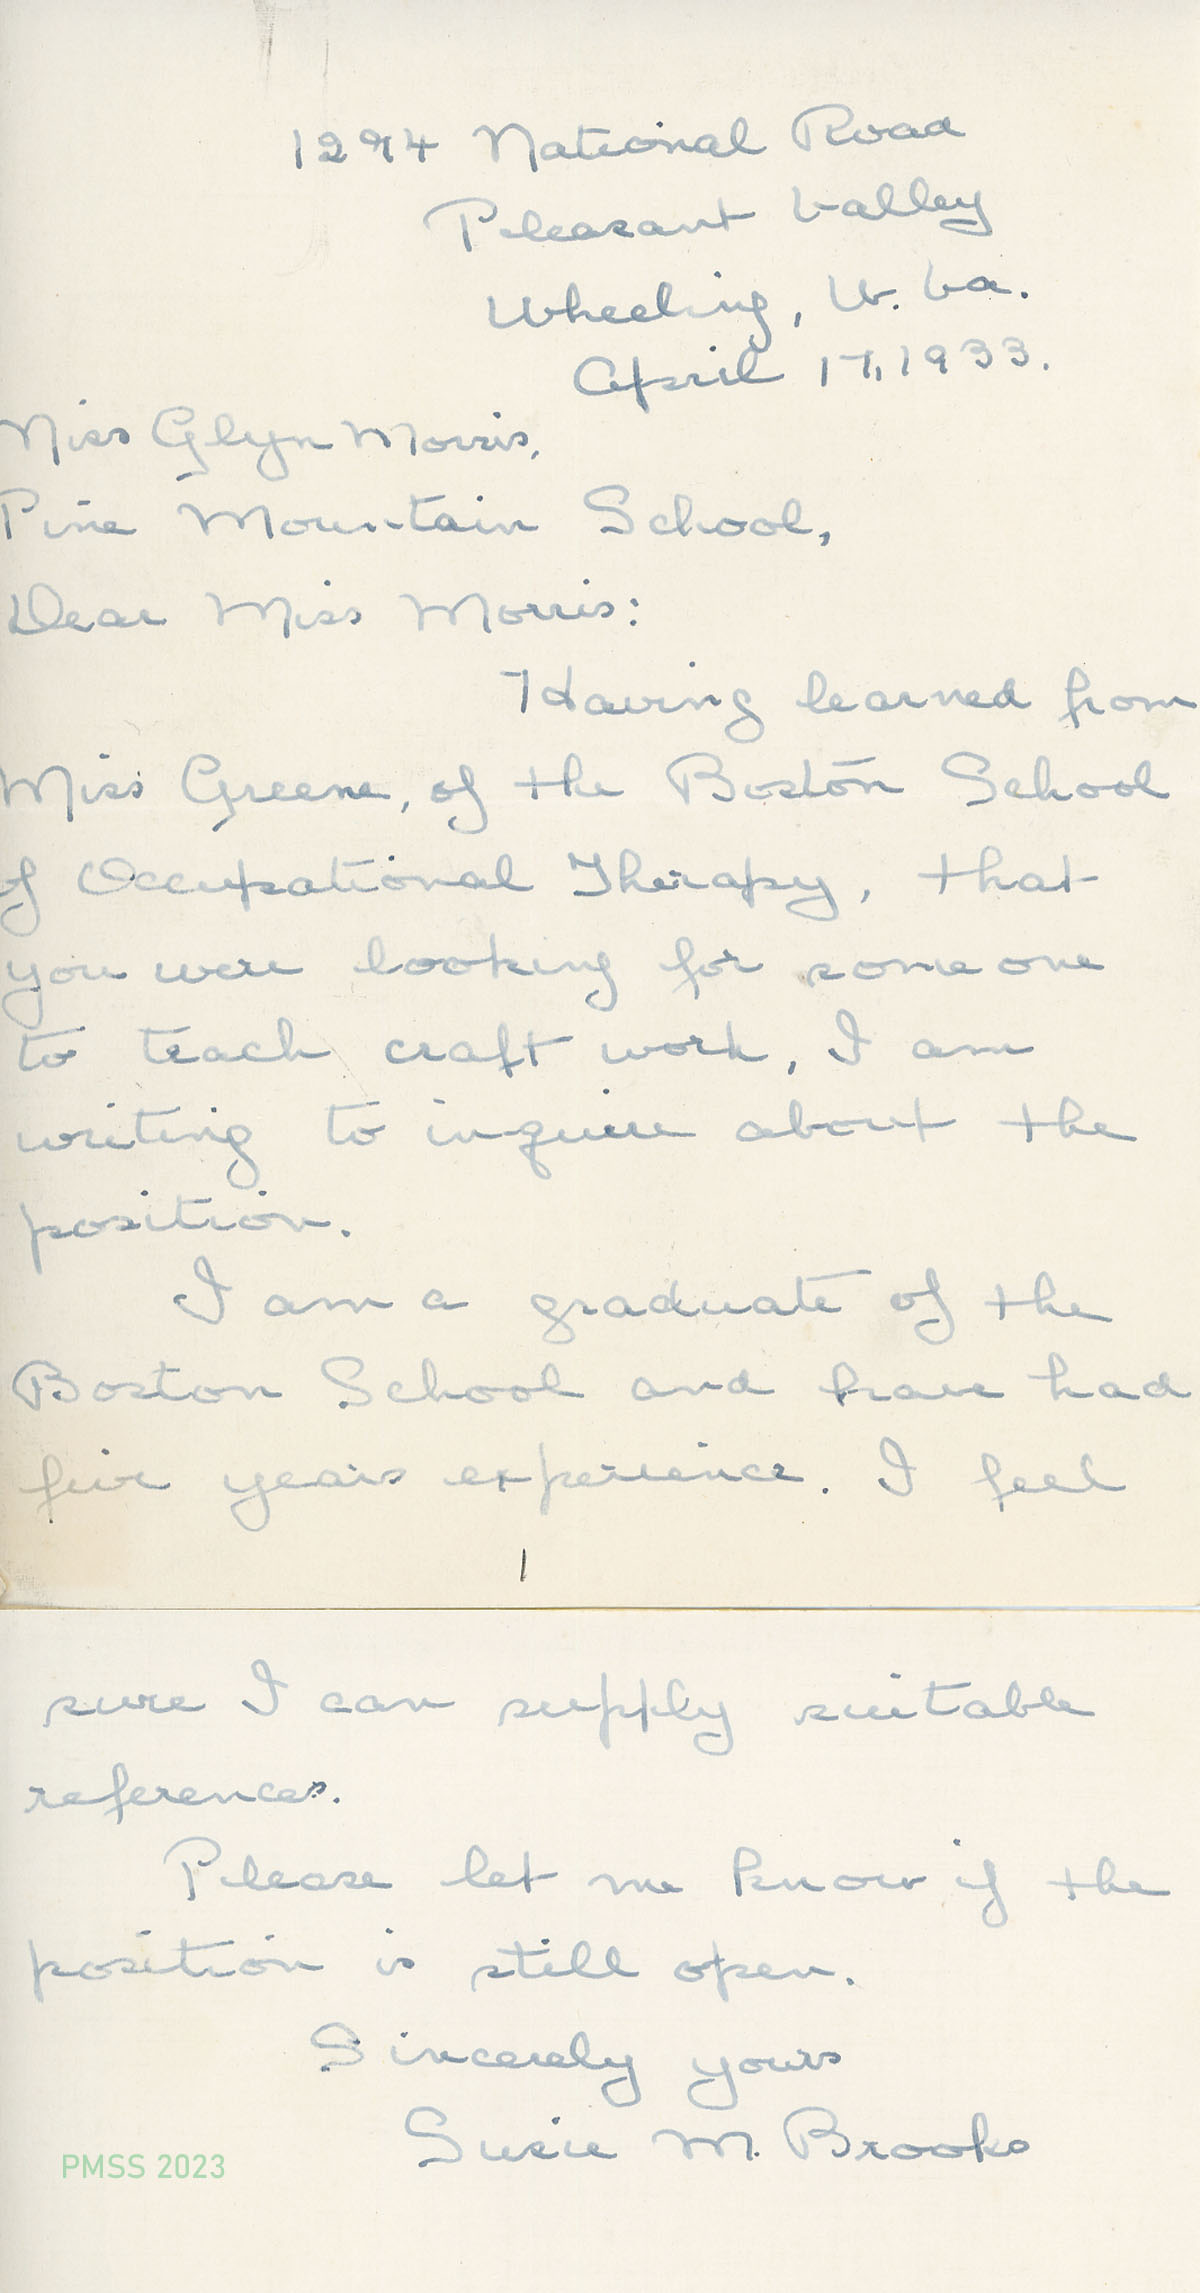 1294 National Road
Pleasant Valley
Wheeling, W. Va.
April 17, 1933.
Miss Glyn Morris,
Pine Mountain School,
Dear Miss Morris:
Having learned from
Miss Greene, of the Boston School
of Occupational Therapy, that
you were looking for some one
to teach craft work, I am
writing to inquire about the
position.
I am a graduate of the
Boston School and have had
five years experience. I feel
1
sure I can supply suitable
references.
Please let me know if the
position is still open.
Sincerely yours
Susie M. Brooks
PMSS 2023